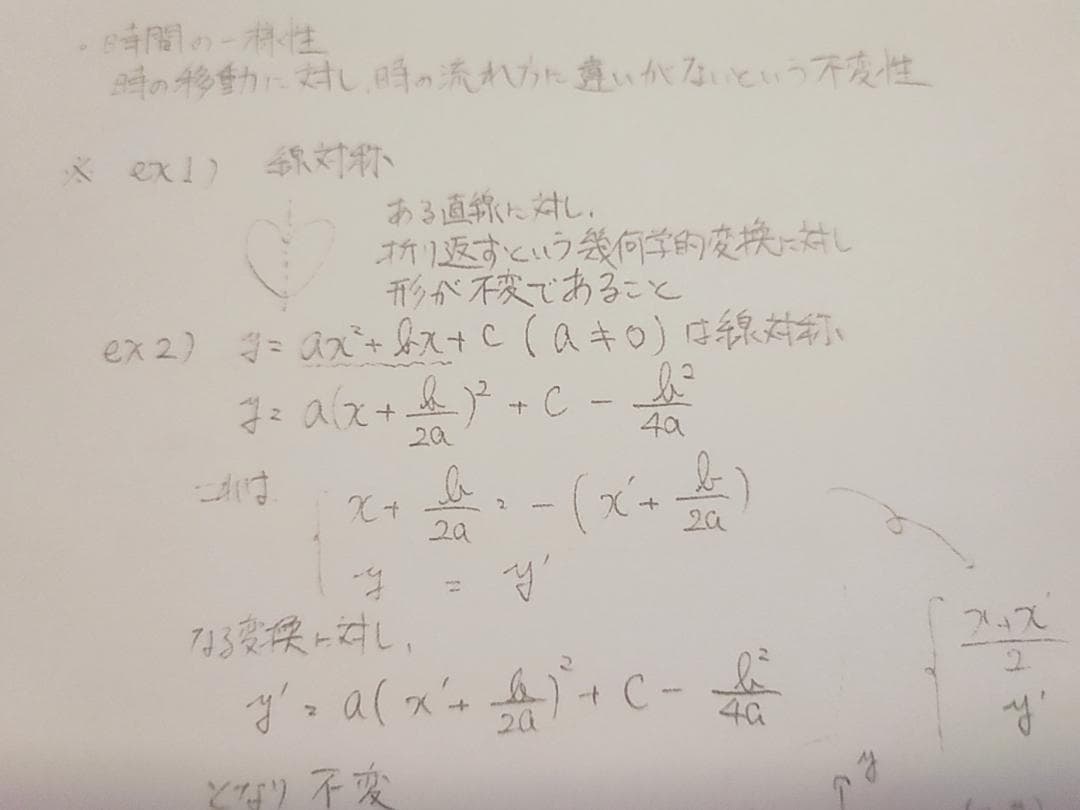 ・時間の一様性
時の移動に対し、時の流れ方に違いがないという不変性
※ ex1) 線対称
ある直線に対し、
折り返すという幾何学的変換に対し
形が不変であること
ex2) y = ax² + bx + c (a ≠ 0) は線対称
y = a(x + b/2a)² + c - b²/4a
これは
x + b/2a = -(x' + b/2a)
y = y'
なる変換に対し、
x + x'/2
y'
y' = a(x' + b/2a)² + c - b²/4a
となり 不変
y